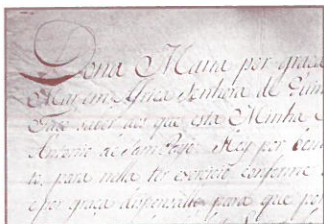 Dona Maria por graça
Mar em Africa Senhora de Guin
Faço saber aos que esta Minha
Antonio de Sam Payo
para nella ter exercicio conforme
e por graça dispensado para que por